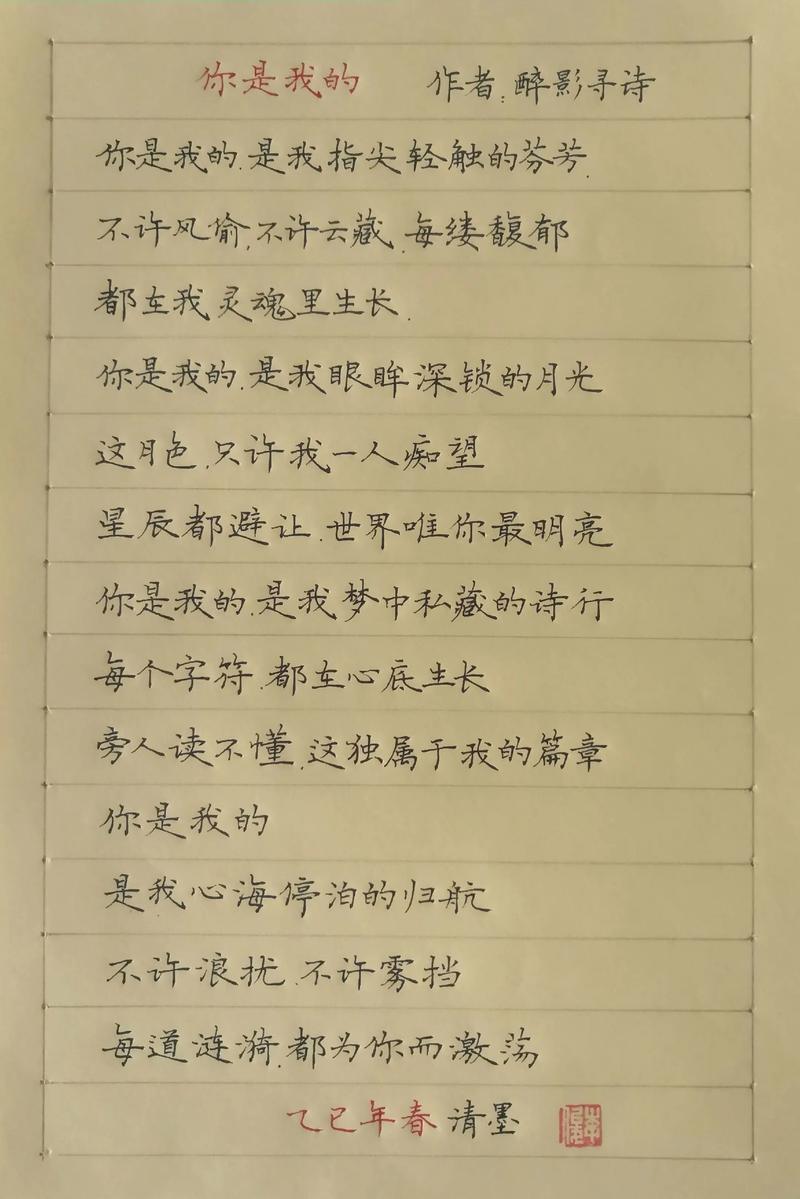 你是我的 作者:醉影寻诗
你是我的.是我指尖轻触的芬芳.
不许风偷,不许云藏.每缕馥郁
都在我灵魂里生长.
你是我的.是我眼眸深锁的月光
这月色.只许我一人痴望
星辰都避让.世界唯你最明亮
你是我的.是我梦中私藏的诗行
每个字符.都在心底生长
旁人读不懂.这独属于我的篇章
你是我的
是我心海停泊的归航
不许浪扰.不许雾挡
每道涟漪.都为你而激荡
乙巳年春 清墨